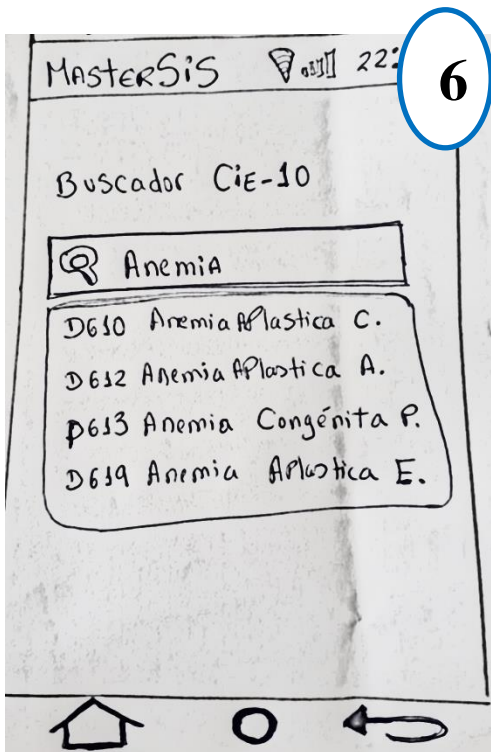 MASTERSiS 22:
6
Buscador CiE-10
AnemiA
D610 Anemia APlastica C.
D612 Anemia APlastica A.
D613 Anemia Congénita P.
D619 Anemia APlastica E.